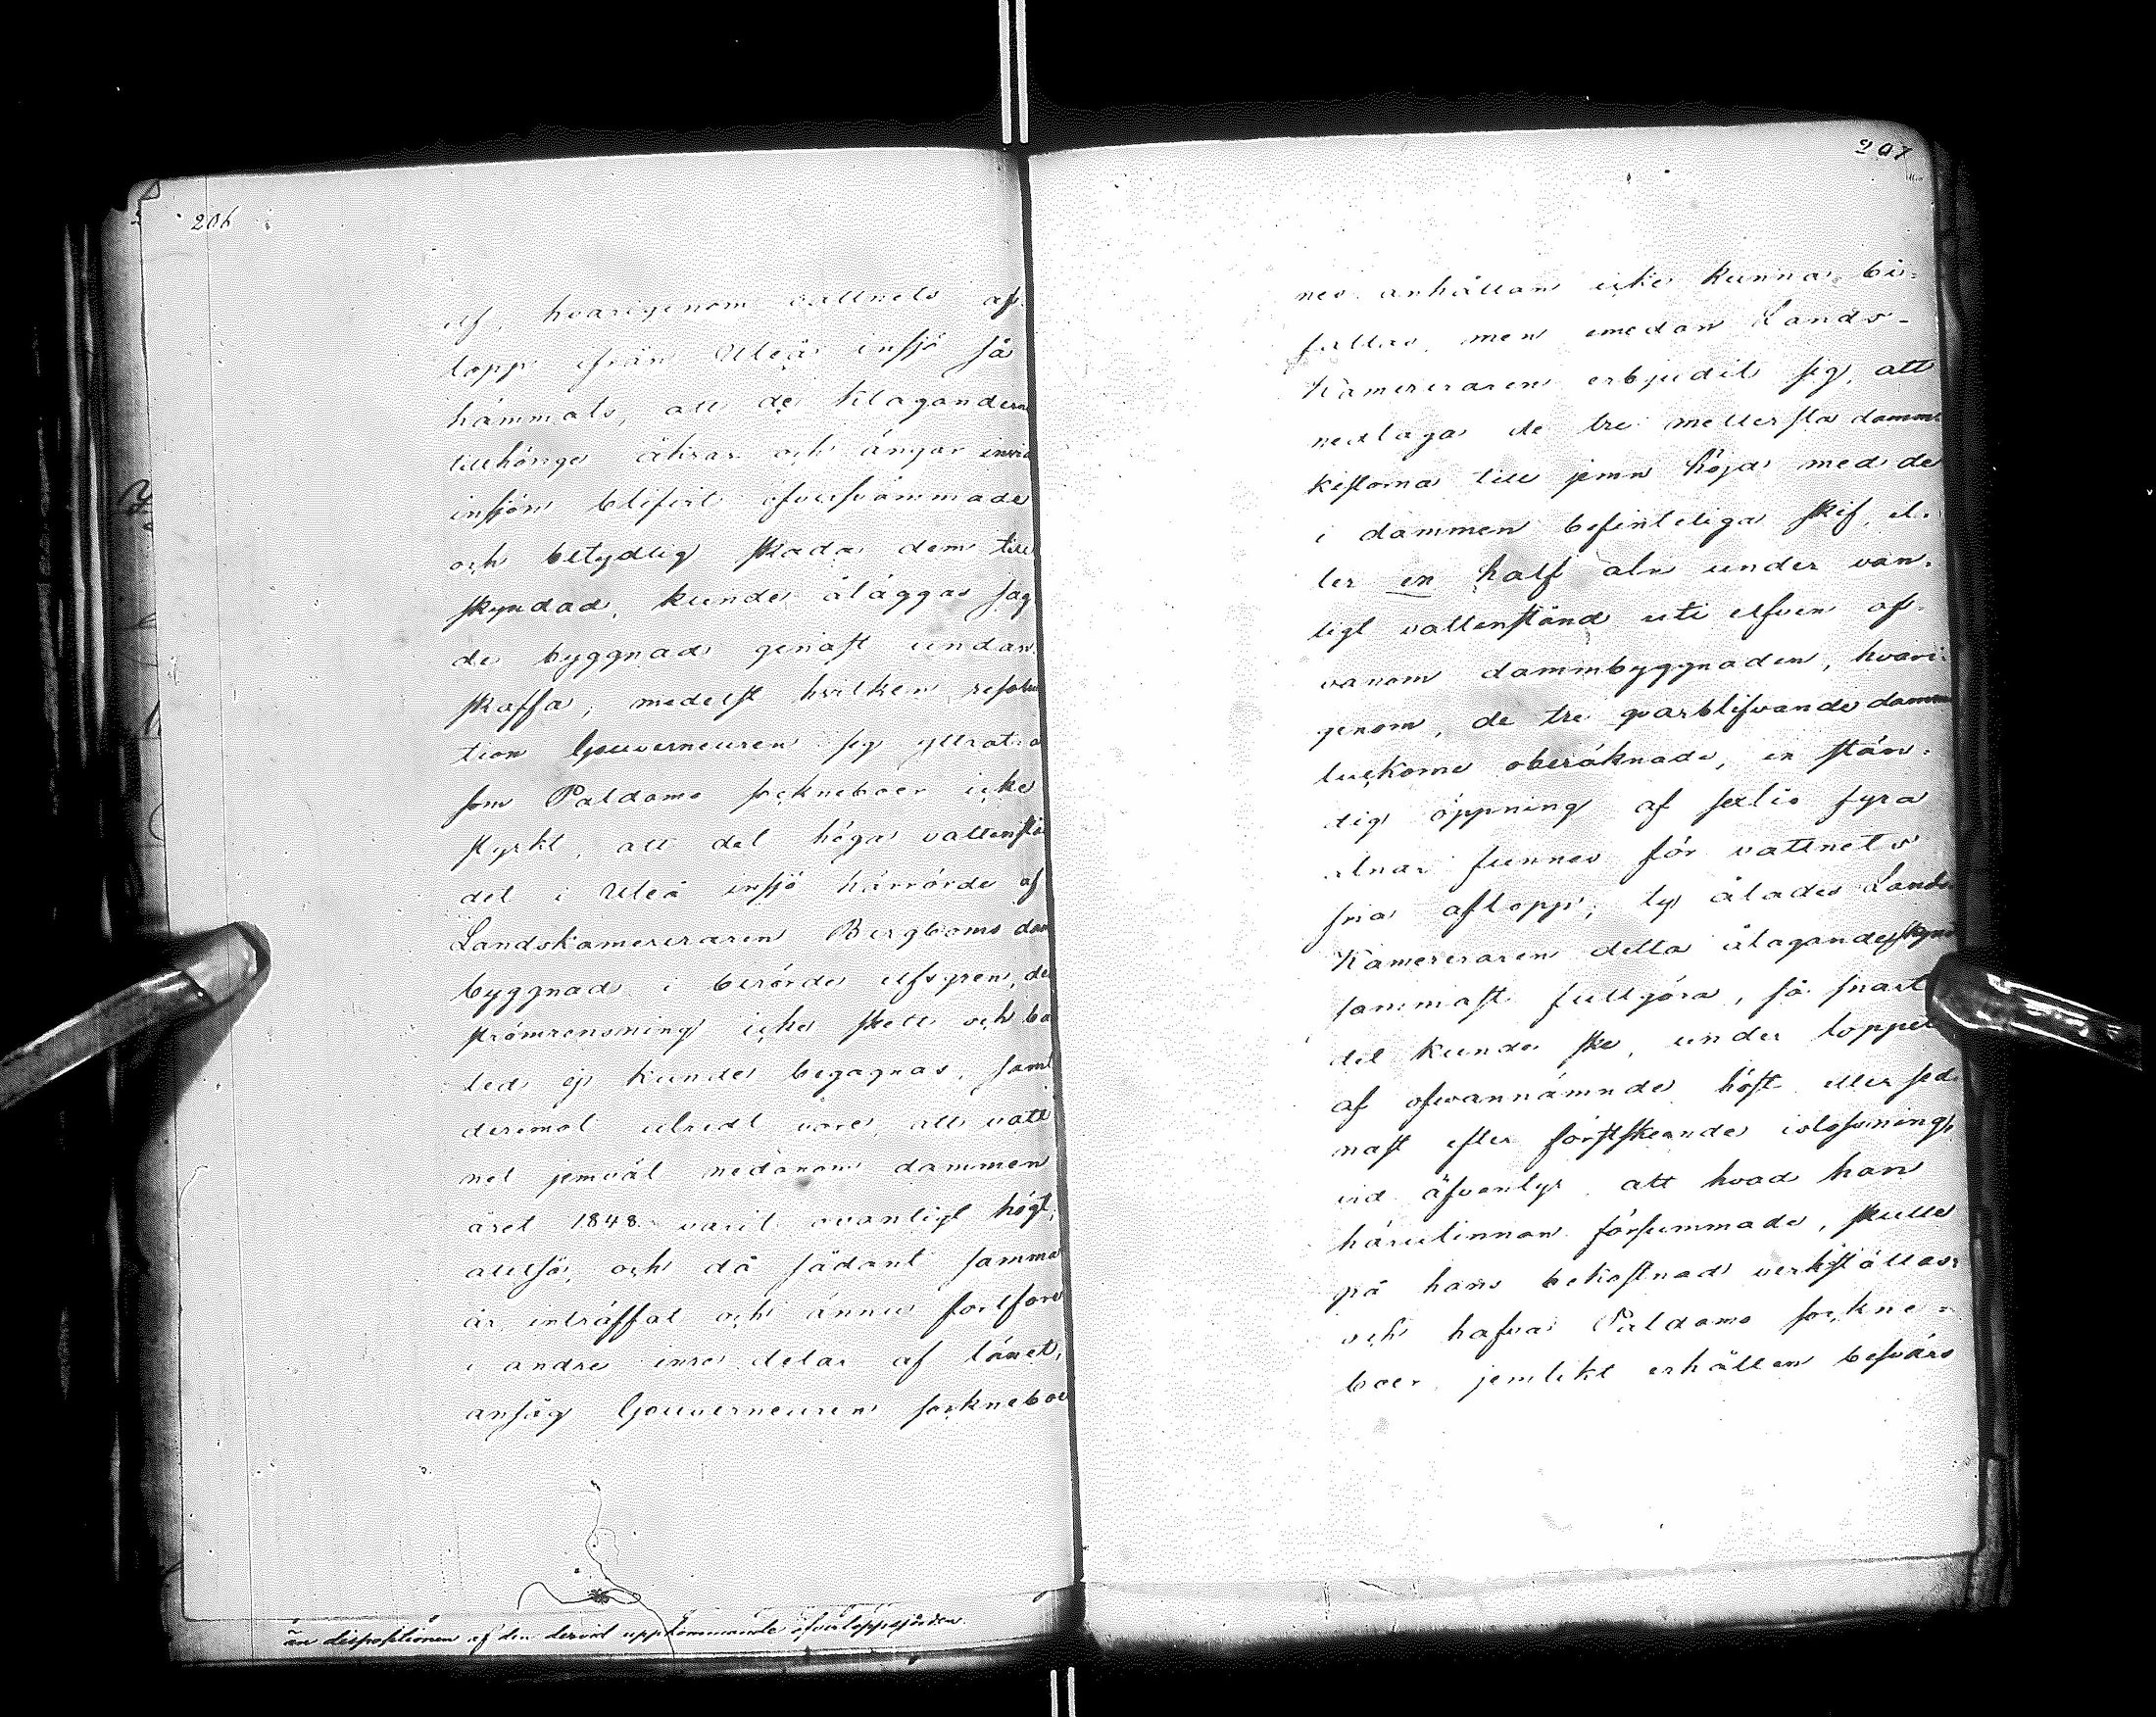 206
elf, hvarigenom vattnets af-
lopp ifrån Uleå insjö så
hämmats, att de klaganderne
tillhörige åkrar och ängar invid
insjön blifvit öfversvämmade
och betydlig skada dem till-
skyndad, kunde åläggas sag
de byggnad genast undan-
skaffa; medelst hvilken resolu
tion Gouverneuren sig yttrat: a
som Paldamo sockneboer icke
styrkt, att det höga vattenstå
det i Uleå insjö härrörde af
Landskamereraren Bergboms dam
byggnad i berörde elfsgren, der
strömrensning icke skett och bå
led ej kunde begagnas, samt
deremot utredt vore, att vatt
net jemväl nedanom dammen
året 1848 varit ovanligt högt,
alltså, och då sådant samma
år inträffat och ännu fortfore
i andre inre delar af länet,
ansåg Gouverneuren sockneboer
än dispositionen af den dervid uppkommande öfverloppsjorden.
207
nes anhållan icke kunna bi-
fallas, men emedan Lands-
Kamereraren erbjudit sig, att
nedtaga de tre mellersta damm-
kistorna till jemn höjd med de
i dammen befinteliga skif, el-
ler en half aln under van-
ligt vattenstånd uti elfven of-
vanom dammbyggnaden, hvari-
genom, de tre qvarblifvande damm
luckorne oberäknade, en stän-
dig öppning af sextio fyra
alnar funnes för vattnets
fria aflopp; ty ålades Lands
Kamereraren detta åtagande skynd
sammast fullgöra, så snart
det kunde ske, under loppet
af ofvannämnde höst eller sed-
nast efter förstskeende islossning,
vid äfventyr att hvad han
härutinnan försummade, skulle
på hans bekostnad verkställas;
och hafva Paldamo sockne-
boer, jemlikt erhållen besvärs